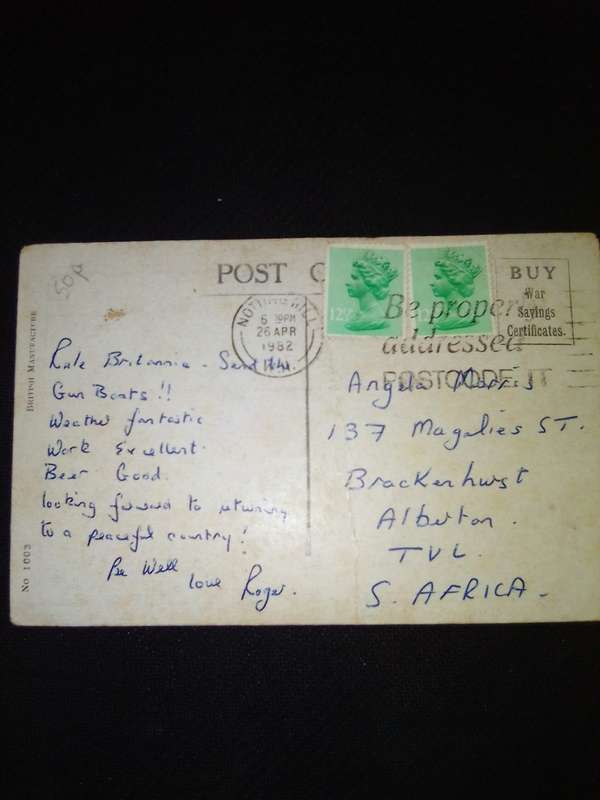 50p
POST C
BUY
War
Savings
Certificates.
NOTTING HILL
6 30PM
26 APR
1982
12½
Be properly
addressed
POSTCODE IT
BRITISH MANUFACTURE
No 1003
Rule Britannia - Send the
Gun Boats!!
Weather fantastic
Work Excellent.
Beer Good.
looking forward to returning
to a peaceful country!
Be Well
love Roger.
Angela Morris
137 Magalies ST.
Brackenhurst
Alberton.
TVL.
S. AFRICA.